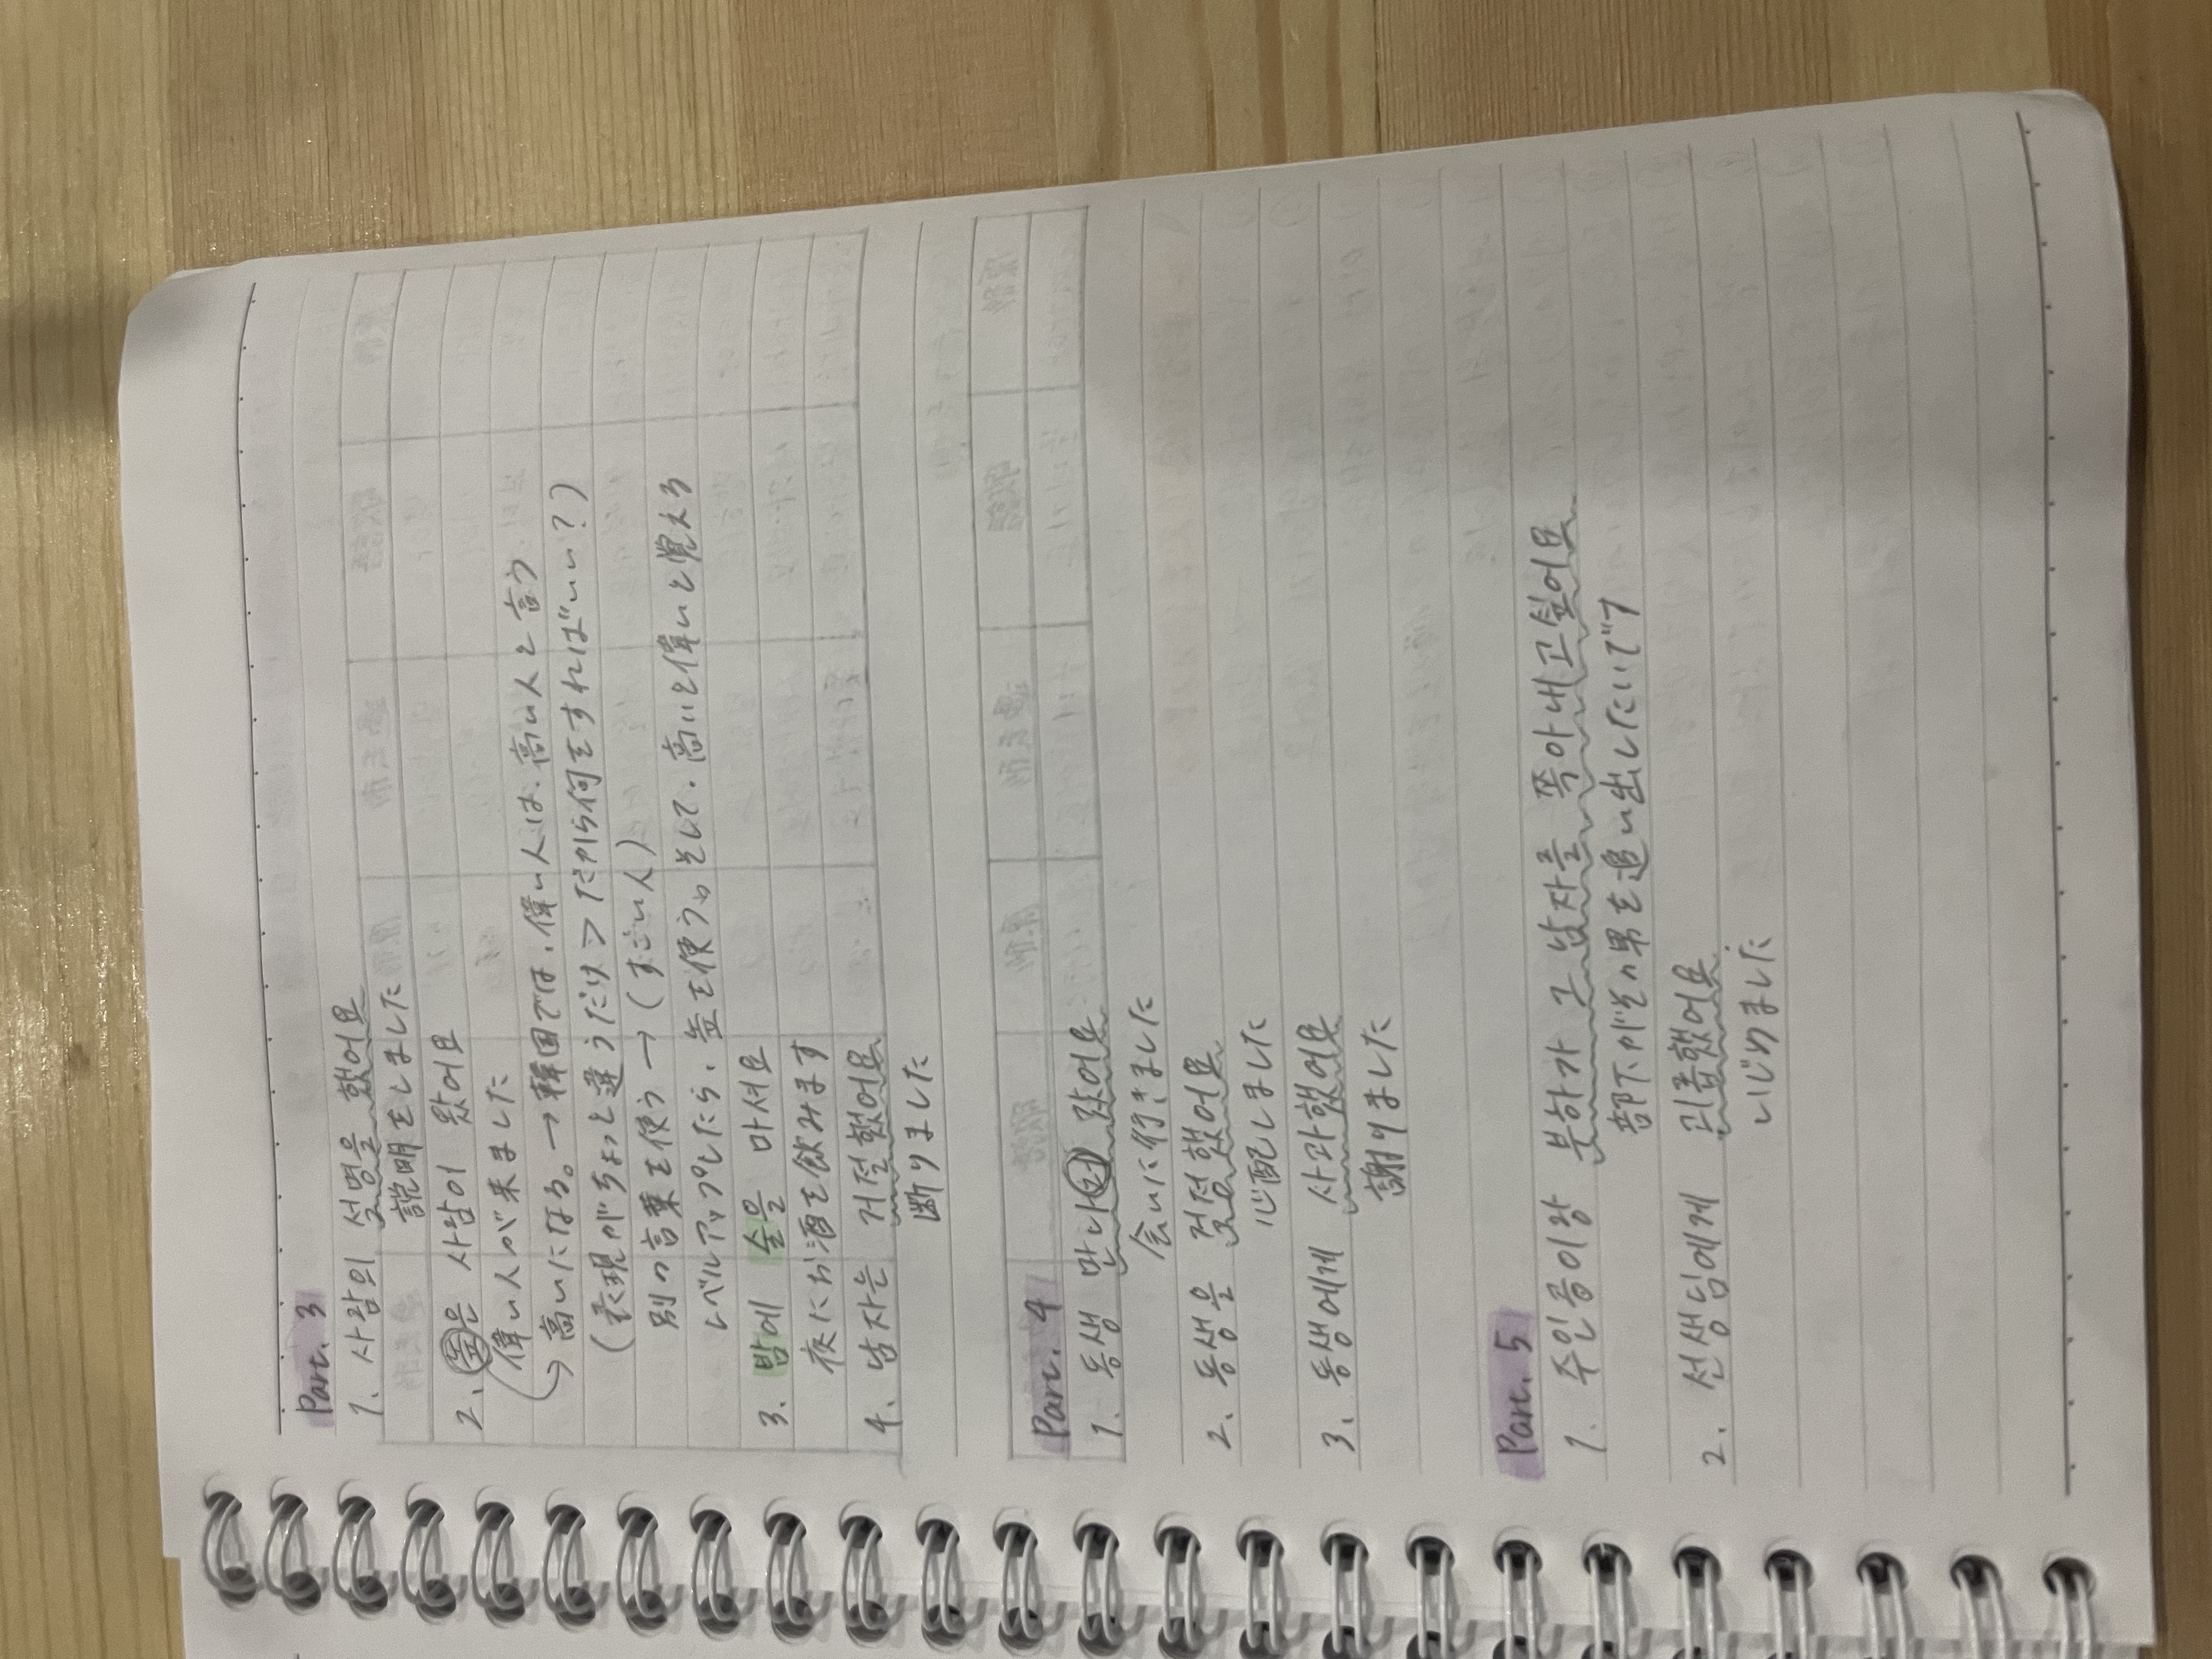 Part. 3
1. 사람의 설명을 했어요
説明をしました
2. 높은 사람이 왔어요
偉い人が来ました
→ 高いになる。→ 韓国では、偉い人は、高い人と言う
(表現がちょっと違うだけ > だから何をすればいい?)
別の言葉を使う → (すごい人)
レベルアップしたら、높を使う。そして、高いと偉いと覚える
3. 밤에 술을 마셔요
夜にお酒を飲みます
4. 남자는 거절했어요
断りました
Part. 4
1. 동생 만나러 갔어요
会いに行きました
2. 동생을 걱정했어요
心配しました
3. 동생에게 사과했어요
謝りました
Part. 5
1. 주인공이랑 부하가 그 남자를 쫓아내고싶어요
部下がその男を追い出したいです
2. 선생님에게 괴롭했어요
いじめました